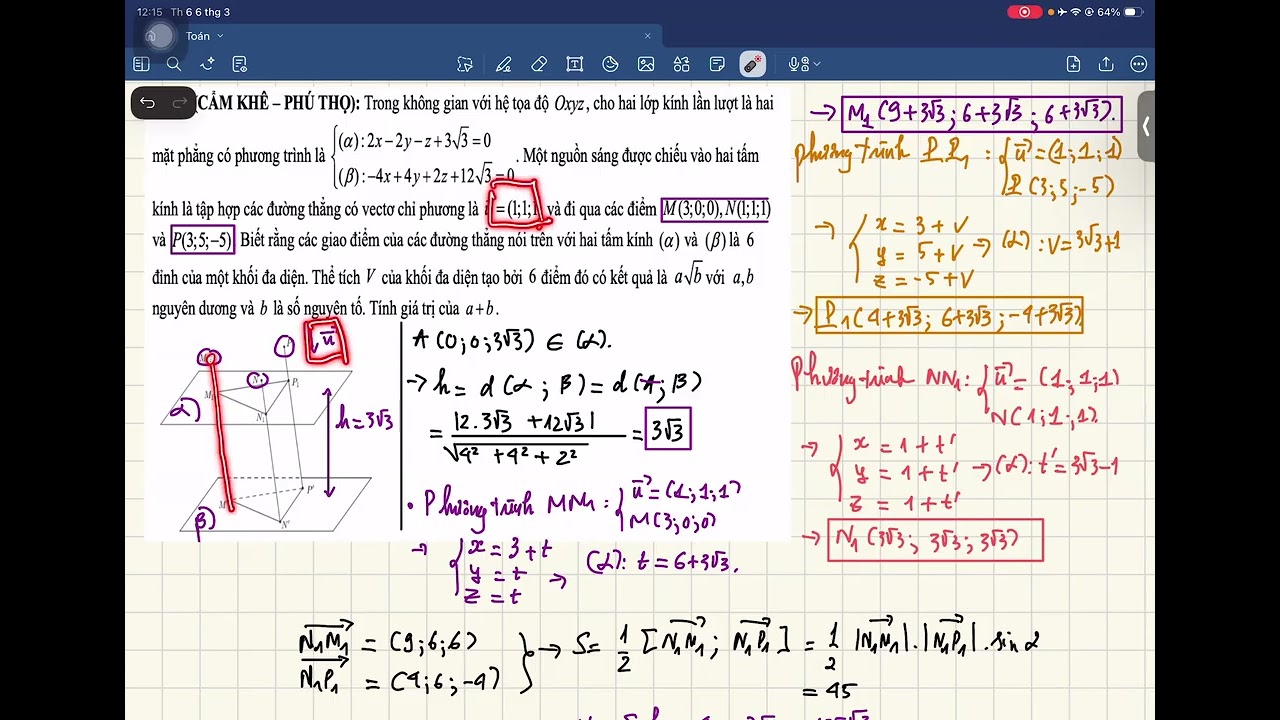 12:15 Th 6 6 thg 3
64%
Toán
(CẨM KHÊ – PHÚ THỌ): Trong không gian với hệ tọa độ Oxyz, cho hai lớp kính lần lượt là hai
mặt phẳng có phương trình là { (α): 2x−2y−z+3√3=0
(β): −4x+4y+2z+12√3=0 . Một nguồn sáng được chiếu vào hai tấm
kính là tập hợp các đường thẳng có vectơ chỉ phương là =(1;1;1 và đi qua các điểm M(3;0;0), N(1;1;1)
và P(3;5;−5). Biết rằng các giao điểm của các đường thẳng nói trên với hai tấm kính (α) và (β) là 6
đỉnh của một khối đa diện. Thể tích V của khối đa diện tạo bởi 6 điểm đó có kết quả là a√b với a,b
nguyên dương và b là số nguyên tố. Tính giá trị của a+b.
u⃗
M
N
P₁
M
N₁
α)
h=3√3
M
P'
N'
β)
A(0;0;3√3) ∈ (α).
→ h = d(α;β) = d(A;β)
= |2.3√3 + 12√3| / √4² + 4² + 2² = 3√3
• Phương trình MM₁: { u⃗=(1;1;1)
M(3;0;0)
→ { x = 3+t
y = t → (α): t = 6+3√3.
z = t
→ M₁(9+3√3; 6+3√3; 6+3√3).
Phương trình PP₁: { u⃗=(1;1;1)
P(3;5;-5)
→ { x = 3+v
y = 5+v → (α): v=3√3+1
z = -5+v
→ P₁(4+3√3; 6+3√3; -4+3√3)
Phương trình NN₁: { u⃗=(1;1;1)
N(1;1;1).
→ { x = 1+t'
y = 1+t' → (α): t'=3√3-1
z = 1+t'
→ N₁(3√3; 3√3; 3√3)
N₁M₁ = (9;6;6)
N₁P₁ = (4;6;-4) } → S= 1/2 [N₁M₁; N₁P₁] = 1/2 |N₁M₁|.|N₁P₁|.sin α
= 45